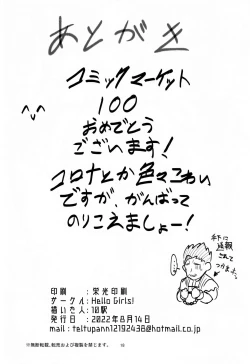 あとがき
コミックマーケット
100
おめでとう
ございます!
コロナとか色々こわい
ですが、がんばって
のりこえましょー!
印刷 : 栄光印刷
サークル : Hello Girls!
描いた人 : 10駅
発行日 : 2022年8月14日
mail : teltupann12192438@hotmail.co.jp
※無断転載、転売および複製を禁じます。